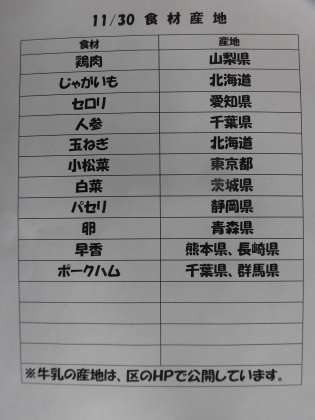 11/30 食材産地
食材 産地
鶏肉 山梨県
じゃがいも 北海道
セロリ 愛知県
人参 千葉県
玉ねぎ 北海道
小松菜 東京都
白菜 茨城県
パセリ 静岡県
卵 青森県
早香 熊本県、長崎県
ポークハム 千葉県、群馬県
※牛乳の産地は、区のHPで公開しています。